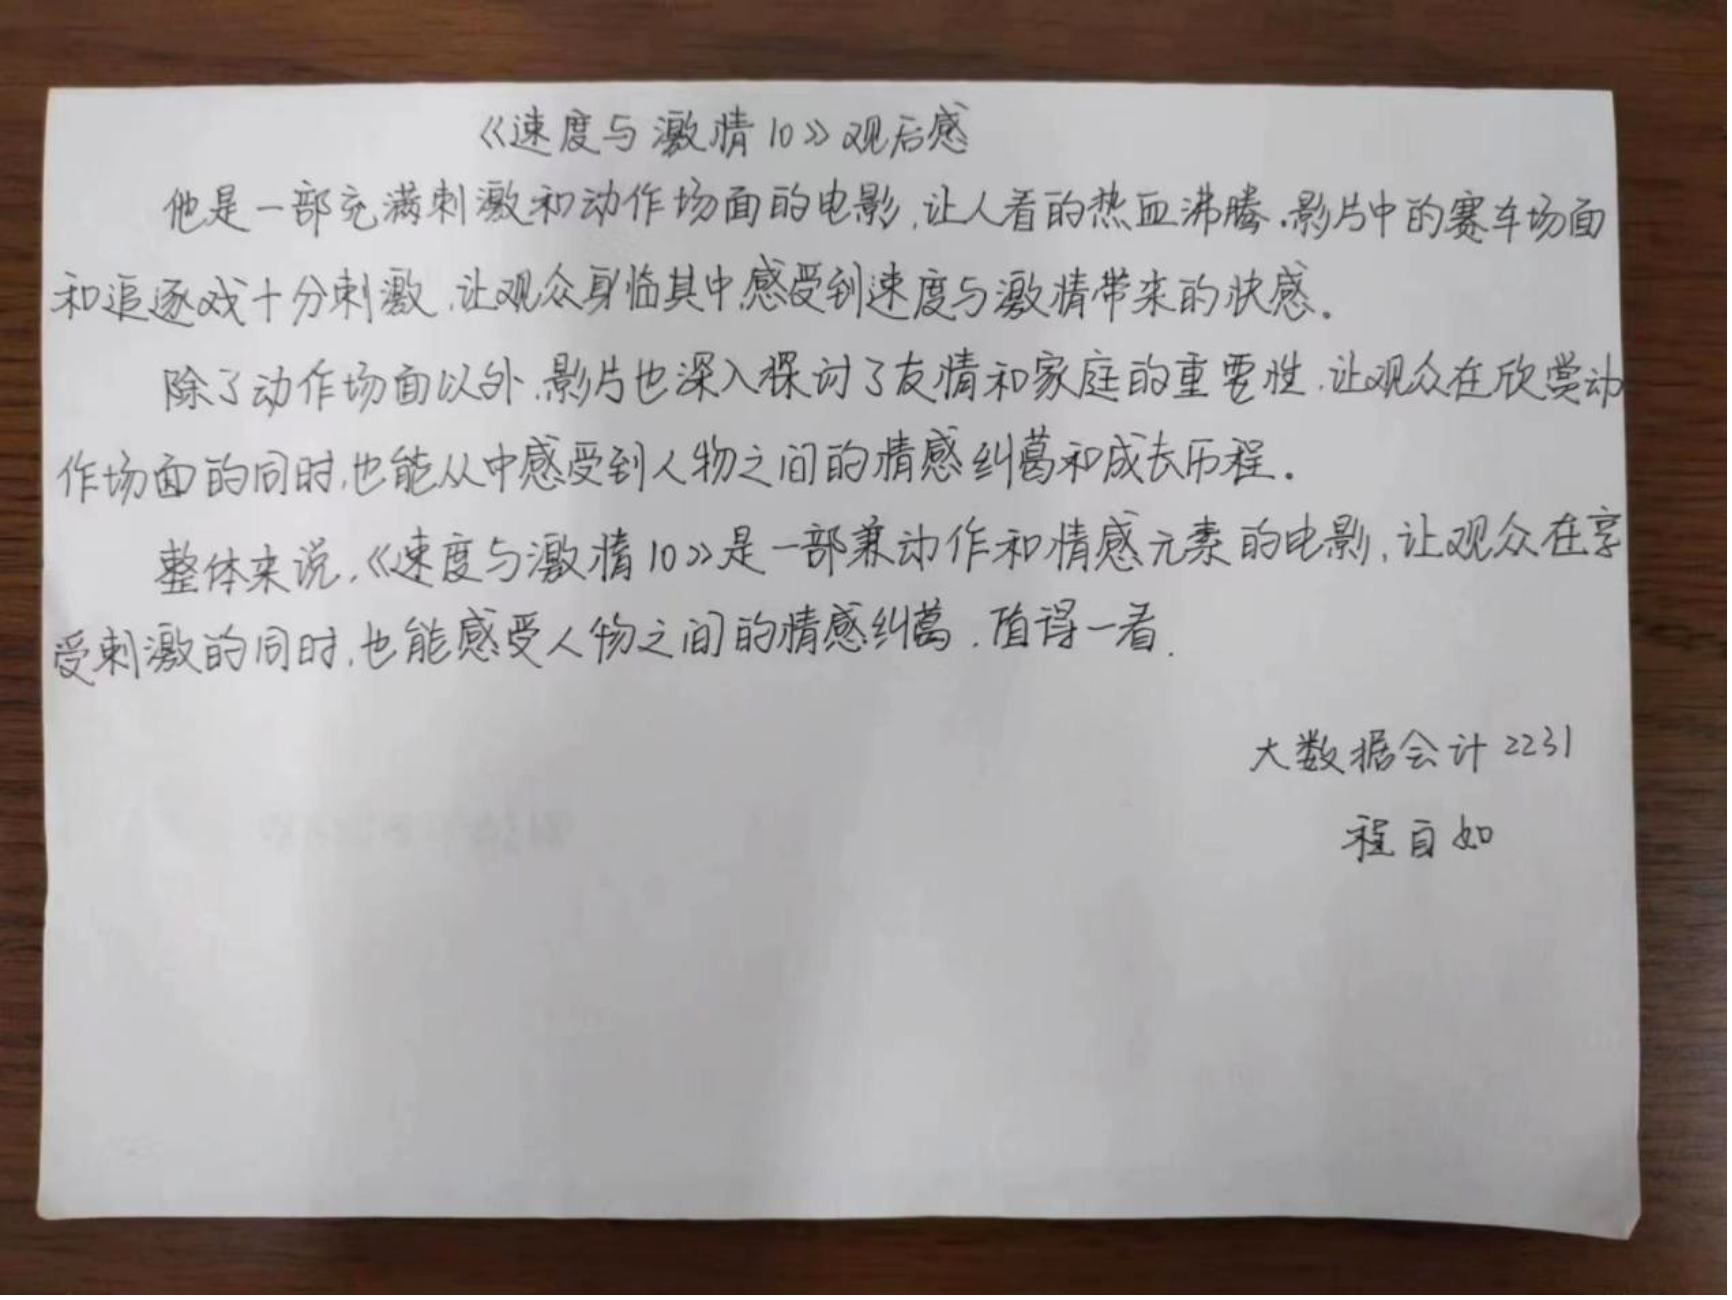 《速度与激情10》观后感
他是一部充满刺激和动作场面的电影,让人看的热血沸腾.影片中的赛车场面
和追逐戏十分刺激,让观众身临其中,感受到速度与激情带来的快感。
除了动作场面以外,影片也深入探讨了友情和家庭的重要性,让观众在欣赏动
作场面的同时,也能从中感受到人物之间的情感纠葛和成长历程。
整体来说,《速度与激情10》是一部兼动作和情感元素的电影,让观众在享
受刺激的同时,也能感受人物之间的情感纠葛,值得一看.
大数据会计2231
程自如